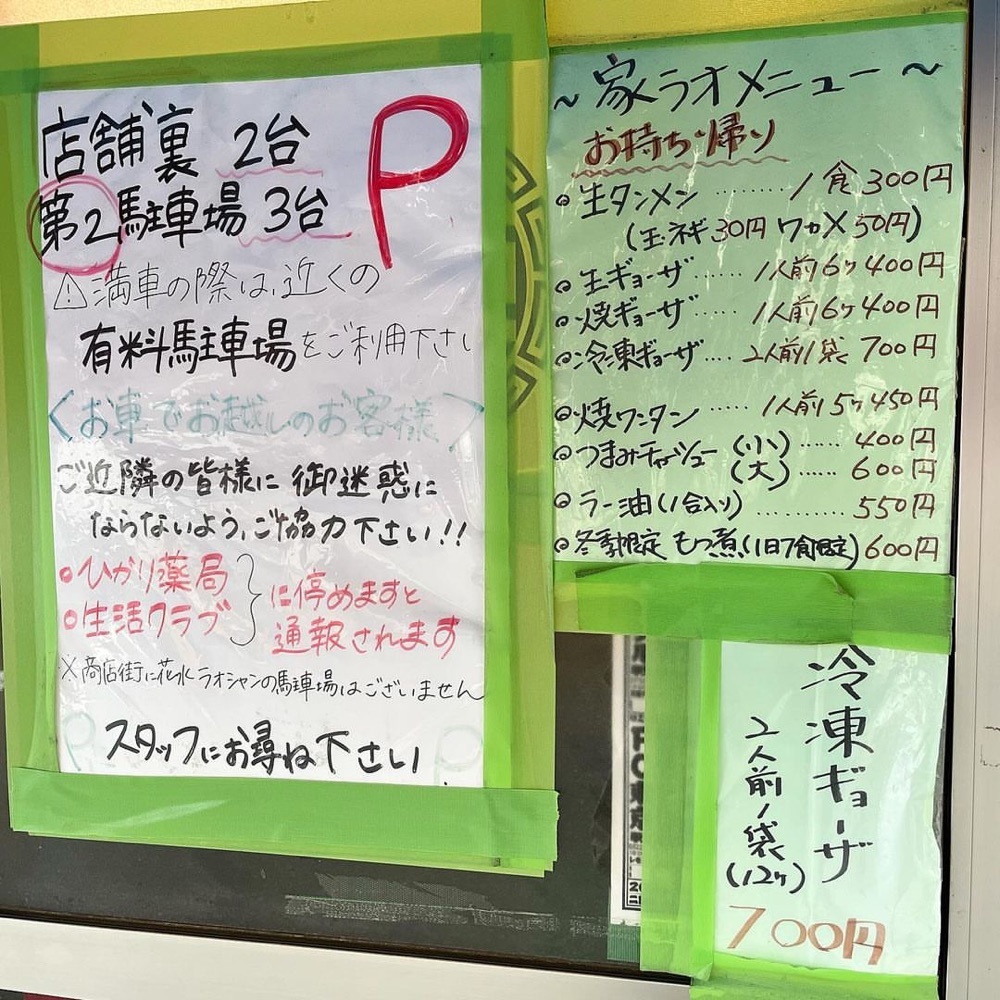 店舗裏 2台
第2駐車場 3台
P
⚠満車の際は、近くの
有料駐車場をご利用下さい
〈お車でお越しのお客様〉
ご近隣の皆様に御迷惑に
ならないよう、ご協力下さい!!
・ひかり薬局
・生活クラブ
に停めますと
通報されます
※商店街に花水ラオシャンの駐車場はございません
P スタッフにお尋ね下さい P
~家ラオメニュー~
お持ち帰り
◎生タンメン ......... 1食300円
(玉ネギ30円 ワカメ50円)
◎生ギョーザ ...... 1人前6ヶ400円
◎焼ギョーザ ...... 1人前6ヶ400円
◎冷凍ギョーザ .... 2人前1袋 700円
◎焼ワンタン ...... 1人前5ヶ450円
◎つまみチャーシュー (小) ...... 400円
(大) ...... 600円
◎ラー油(1合入り) ........... 550円
◎冬季限定 もつ煮(1日7食限定) 600円
冷凍ギョーザ
2人前1袋
(12ヶ)
700円